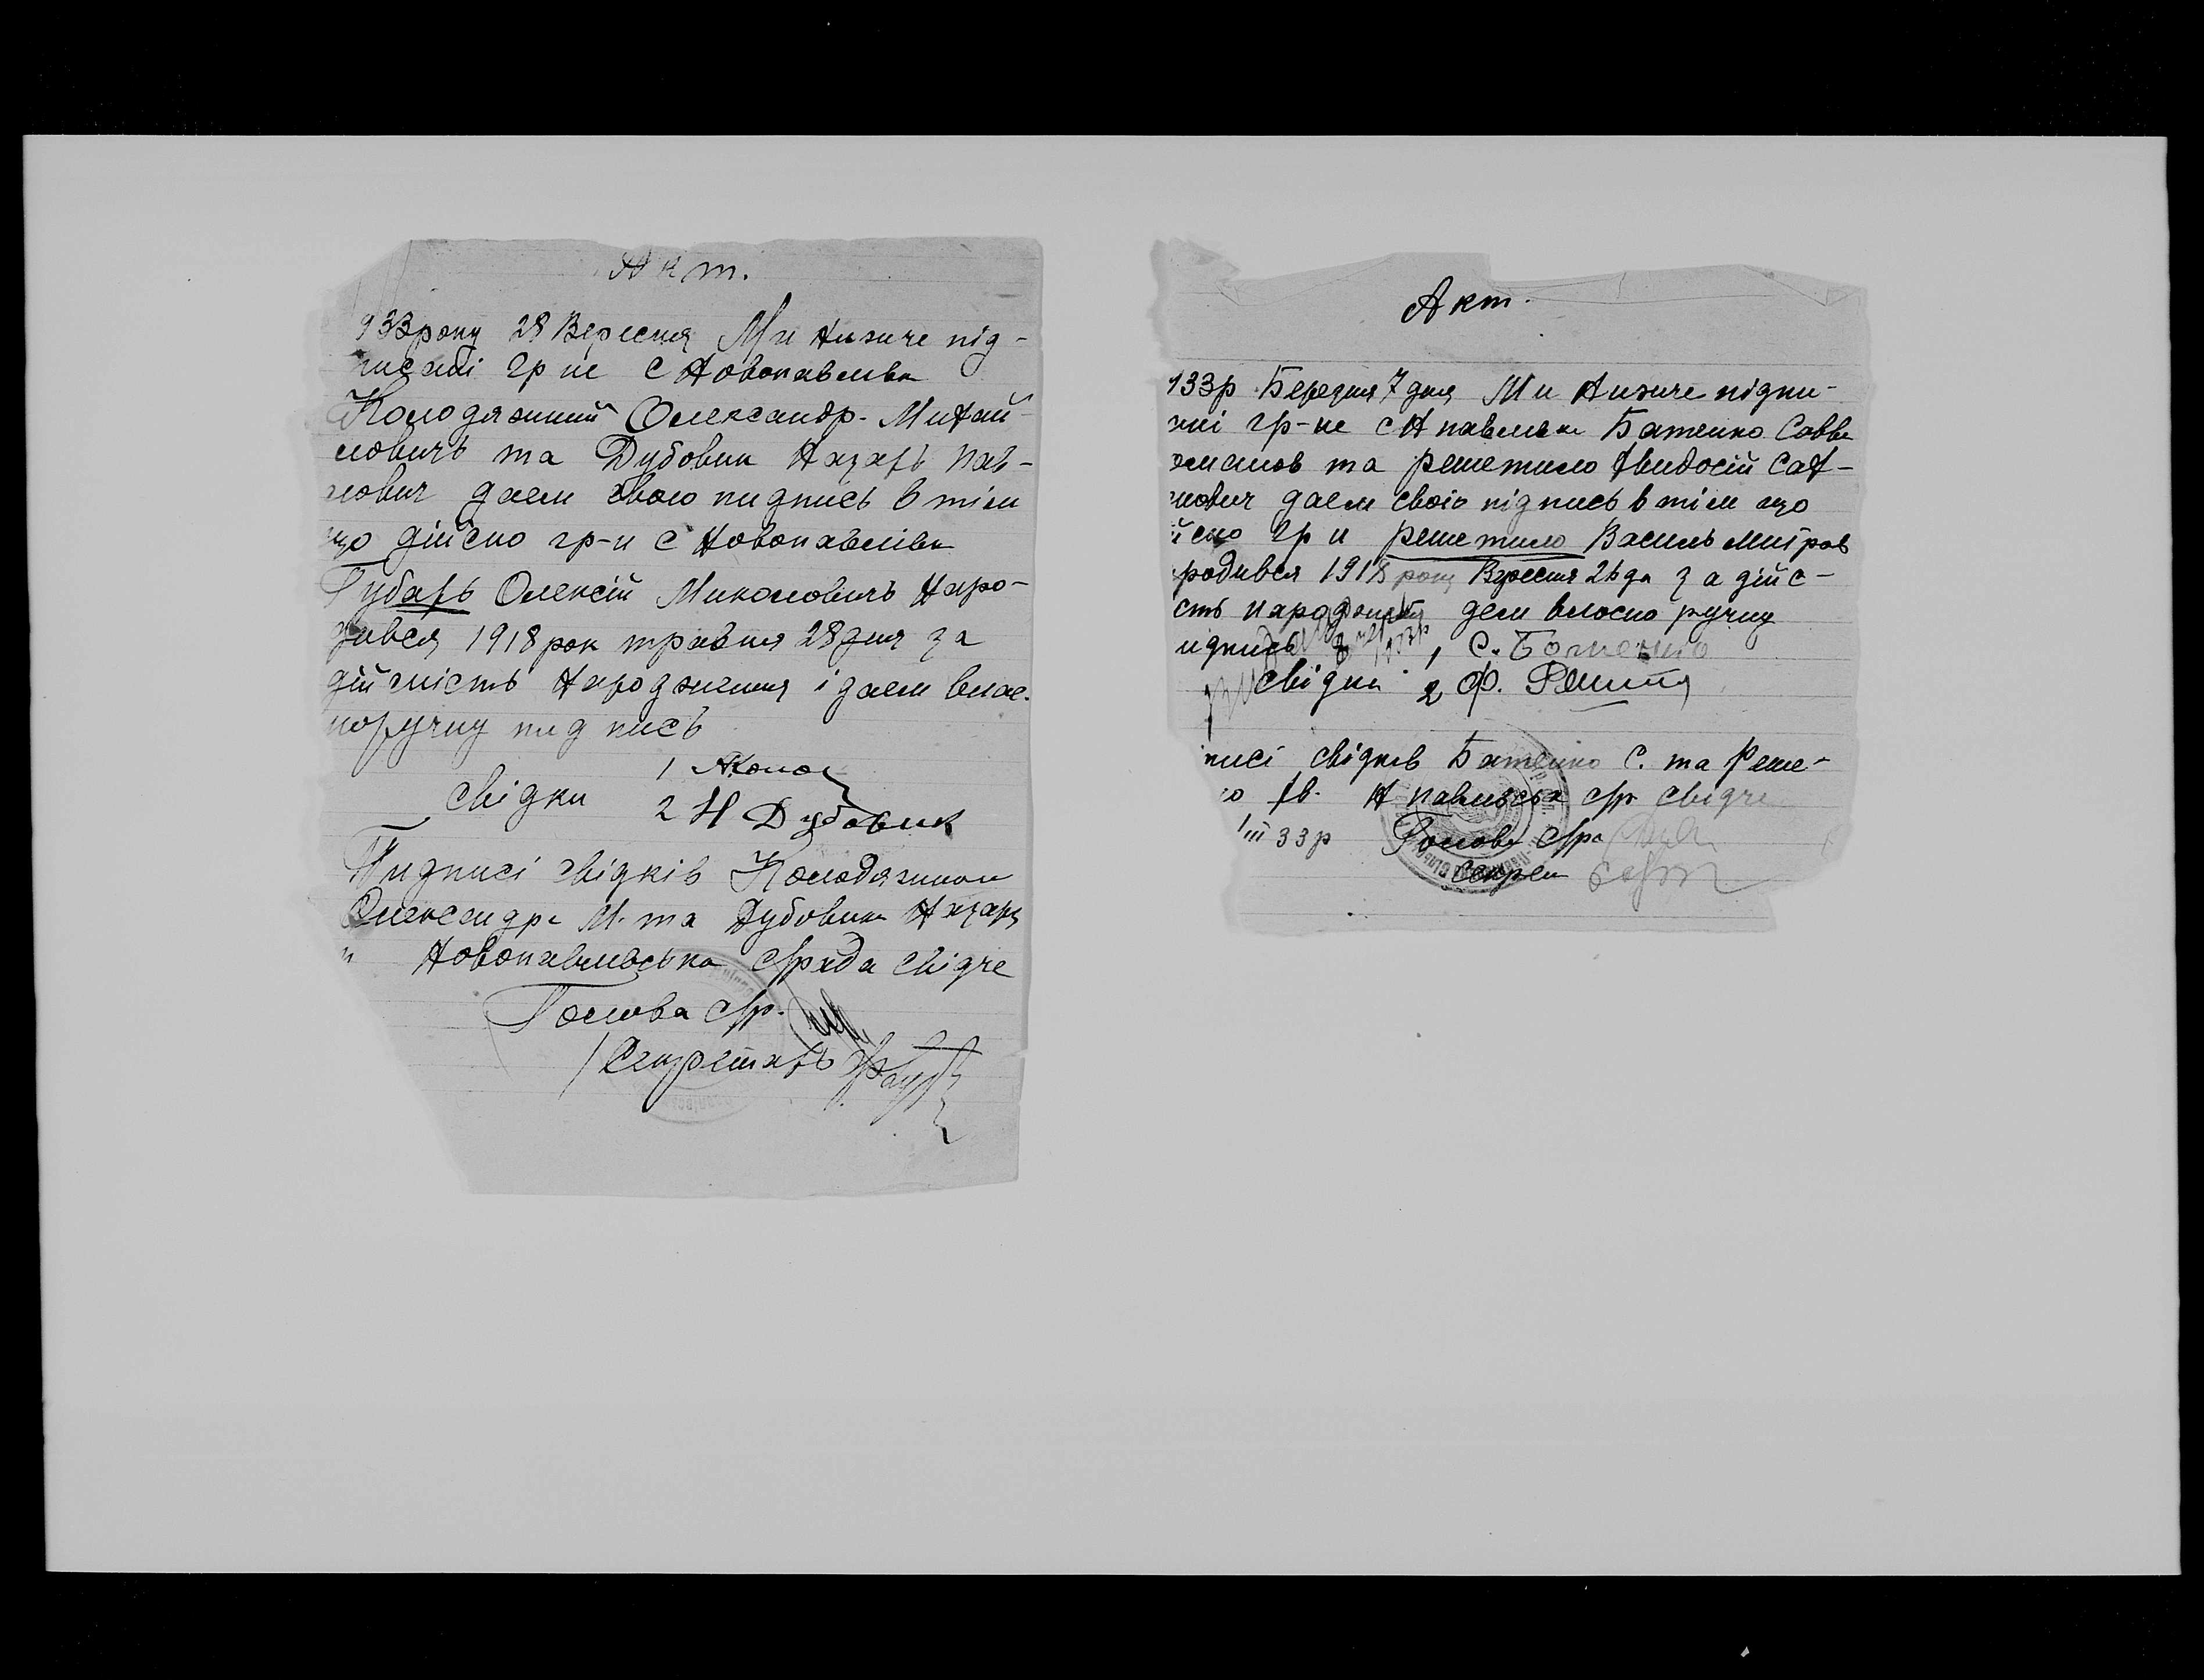 Акт.
933року 28 Вересня Ми низче під-
писані гр не с Новопавлівка
Колодяжний Олександр. Михай-
ловичь та Дубовик Назарь Пав-
лович даем свою пидпись в тім
що дійсно гр-н с Новопавлівка
Губарь Олексій Миколовичь Наро-
дився 1918 рок травня 28 дня за
дійсність народження і даем влас.
норучну пид пись
свідки 1 АКолод
2 Н Дубовик
Пидписі свідків Колодяжном
Олександра М. та Дубовика Назара
п Новопавлівська с/рада свідче
Голова с/р.
Секретарь
Акт.
933р Березня 7 дня Ми низче підпи-
ані гр-не с Н павлівки Батенко Савва
оманов та Решетило Авидосій Сах-
нович даем своіо підпись в тім що
йсно гр н Решетило Василь Митров
родився 1918 року Вересня 26 дн за дійс-
сть народження дем власно ручну
ідпись 1, С. Батенко
свідки 2 Ф. Решит
писі свідків Батенко С. та Реше-
ло Ав. Н павлівська с/р свідче
/ІІІ 33 р Голова с/ра
Секрет